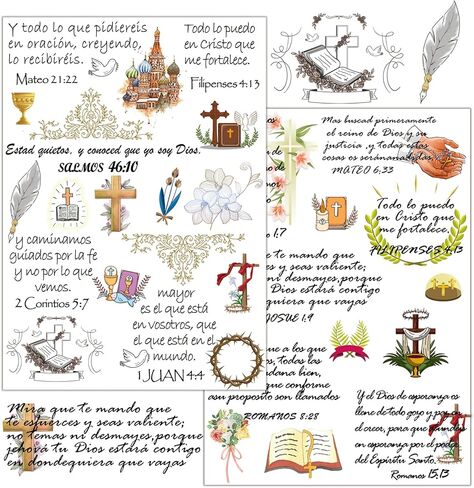 Y todo lo que pidiereis
en oración, creyendo,
lo recibiréis.
Mateo 21:22
Todo lo puedo
en Cristo que
me fortalece.
Filipenses 4:13
Estad quietos, y conoced que yo soy Dios.
SALMOS 46:10
y caminamos
guiados por la fe
y no por lo que
vemos.
2 Corintios 5:7
mayor
es el que está
en vosotros, que
el que está en el
mundo.
1 JUAN 4:4
Mas buscad primeramente
el reino de Dios y su
justicia ,y todas estas
cosas os serán
MATEO 6:33
Todo lo puedo
en Cristo que
me fortalece,
FILIPENSES 4:13
te mando que
es y seas valiente;
ni desmayes,porque
Dios estará contigo
quiera que vayas
JOSUE 1:9
que a los que
todas las
bien,
que conforme
propósito son llamados
ROMANOS 8:28
Y el Dios de esperanza os
llene de todo gozo y paz en
el creer, para que
en esperanza por el poder
del Espíritu Santo,
Romanos 15,13
Mira que te mando que
te esfuerces y seas valiente;
no temas ni desmayes,porque
jehová tu Dios estará contigo
en dondequiera que vayas